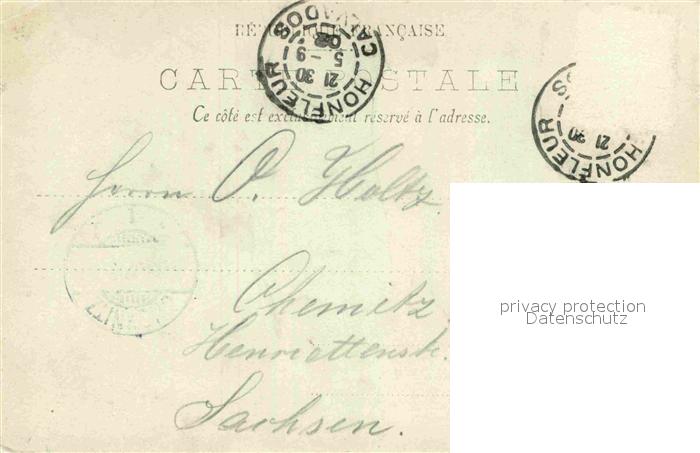 RÉPUBLIQUE FRANÇAISE
CARTE POSTALE
Ce côté est exclusivement réservé à l'adresse.
HONFLEUR CALVADOS
21 30
5 - 9
02
HONFLEUR
21 30
Herrn O. Holtz.
Chemnitz
Henriettenstr.
Sachsen.
privacy protection
Datenschutz